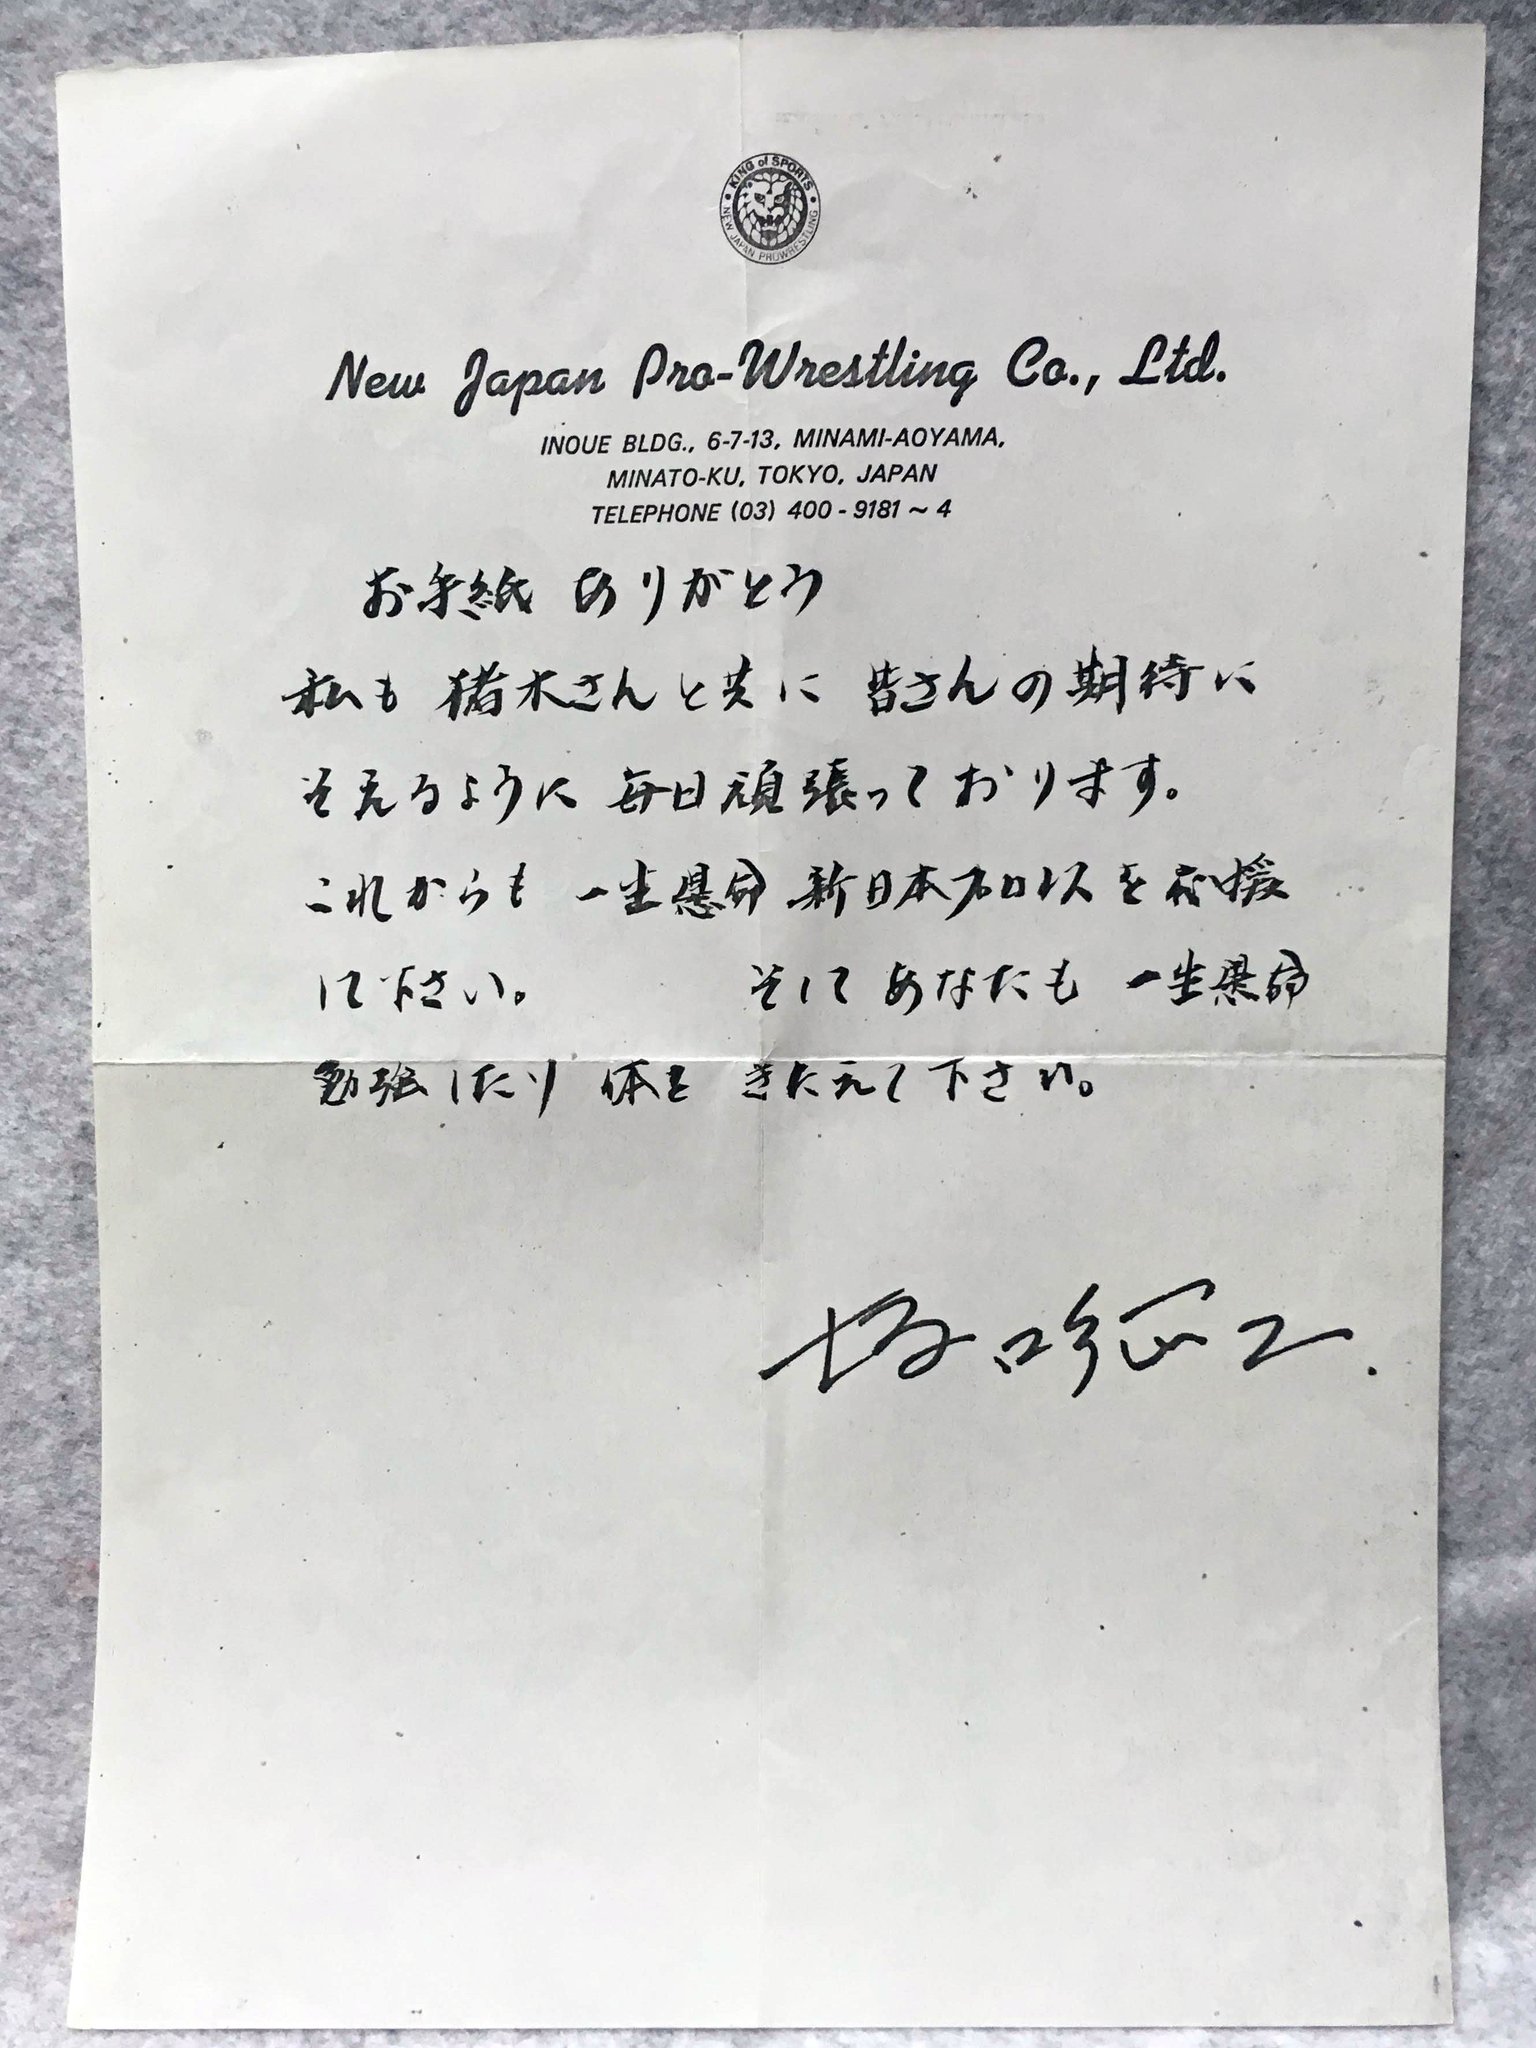 KING of SPORTS
NEW JAPAN PROWRESTLING
New Japan Pro-Wrestling Co., Ltd.
INOUE BLDG., 6-7-13, MINAMI-AOYAMA,
MINATO-KU, TOKYO, JAPAN
TELEPHONE (03) 400 - 9181 ~ 4
お手紙 ありがとう
私も 猪木さんと共に 皆さんの期待に
そえるように 毎日頑張っております。
これからも 一生懸命 新日本プロレスを応援
して下さい。 そして あなたも 一生懸命
勉強したり 体を きたえて下さい。
坂口征二